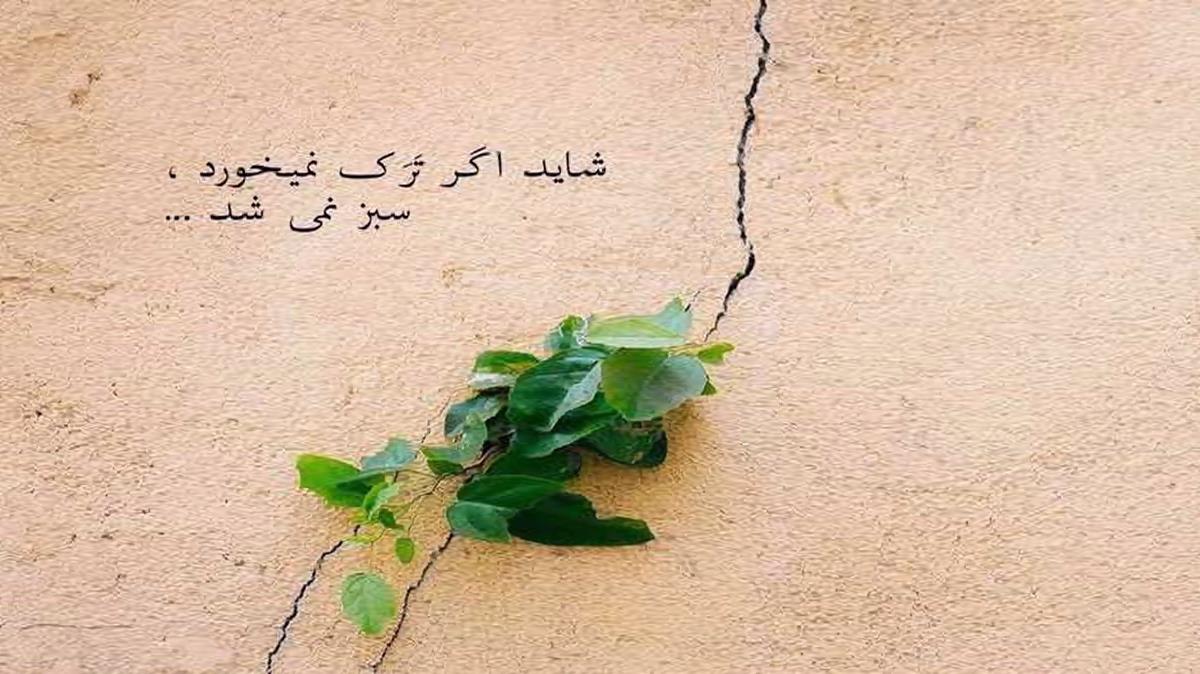 شاید اگر تَرَک نمیخورد ،
سبز نمی شد ...